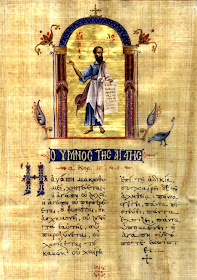 Ο ΥΜΝΟΣ ΤΗΣ ΑΓΑΠΗΣ
Η ἀγάπη μακροθυ
μεῖ, χρηστεύεται,
ἡ ἀγάπη οὐ ζηλοῖ
ἡ ἀγάπη οὐ περπερεύ
εται, οὐ φυσιοῦται, οὐκ
ἀσχημονεῖ, οὐ ζητεῖ
τὰ ἑαυτῆς, οὐ
παροξύνεται, οὐ λογίζεται τὸ
κακόν, οὐ χαίρει
ἐπὶ τῇ ἀδικίᾳ,
συγχαίρει δὲ τῇ
ἀληθείᾳ, πάντα
στέγει, πάντα πι
στεύει, πάντα
ἐλπίζει, πάντα
ὑπομένει. Ἡ
ἀγάπη οὐδέ
ποτε ἐκπίπτει